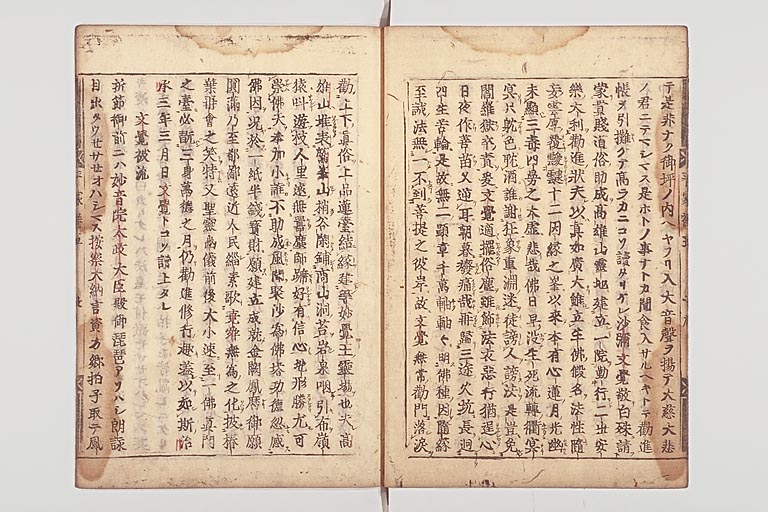 テ是非ナク御坪ノ内ヘヤフリ入大音聲ヲ揚テ大慈大悲
ノ君ニテマシマス是ホトノ事ナトカ聞食入サルヘキトテ勧進
帳ヲ引擴ケテ高ラカニコソ讀タリケレ沙弥文覺敬白殊請
蒙貴賤道俗助成高雄山靈地建立一院勤行二世安
樂大利勸進状夫以真如廣大雖立生佛假名法性隨
妄雲厚覆靉靆十二因縁之峯以来本有心蓮月光幽
未顯三毒四曼之大虚悲哉佛日早没生死流轉衢冥
冥只耽色耽酒誰謝狂象重淵迷徒謗人謗法是豈免
閻羅獄卒責爰文覺適擺俗塵雖飾法衣悪行猶逞心
日夜作善苗又逆耳朝暮廃痛哉再歸三途火坑長迴
四生苦輪是故無二顕章千萬軸軸々明佛種因隨縁
至誠法無一不到菩提之彼岸故文覺無常觀門落涙
勸上下真俗上品蓮臺結縁建等妙覺王靈場也夫高
雄山堆表鷲峯山梢谷閑鋪商山洞苔岩泉咽引布嶺
猿叫遊枝人里遠無囂塵師跡好有信心地形勝尤可
崇佛天奉加少誰不助成風聞聚沙為佛塔功徳忽感
佛因况於一紙半錢寳財願建立成就金闕鳳暦御願
圓滿乃至都鄙遠近人民緇素歌尭舜無為之化披椿
葉再會之笑特又聖靈幽儀前後大小速至一佛真門
之臺必翫三身萬徳之月仍勸進修行趣蓋以如斯治
承三年三月日文覺トコソ讀上タレ
文覺被流
折節御前ニハ妙音院太政大臣殿御琵琶アソハシ朗詠
目出タウセサセオハシマス按察大納言資方卿拍子取テ風